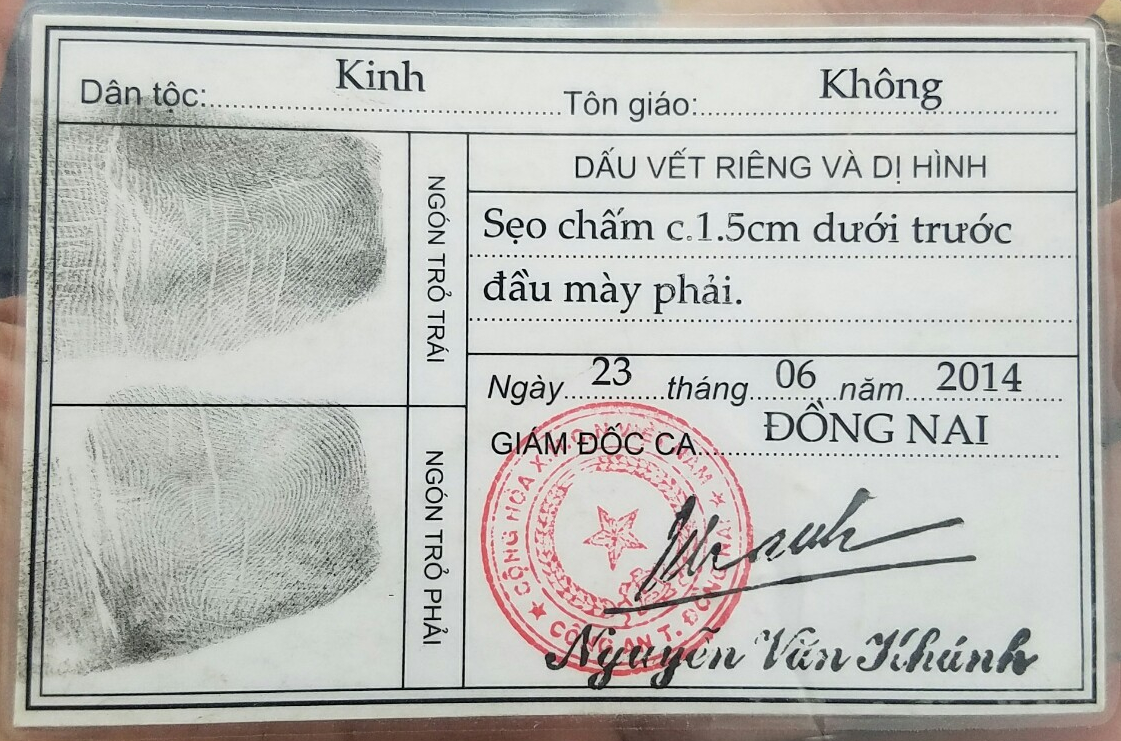 Dân tộc: Kinh Tôn giáo: Không
NGÓN TRỎ TRÁI
DẤU VẾT RIÊNG VÀ DỊ HÌNH
Sẹo chấm c.1.5cm dưới trước
đầu mày phải.
NGÓN TRỎ PHẢI
Ngày 23 tháng 06 năm 2014
GIÁM ĐỐC CA ĐỒNG NAI
CỘNG HÒA X.H.C.N VIỆT NAM
CÔNG AN T. ĐỒNG NAI
Nguyễn Văn Khánh